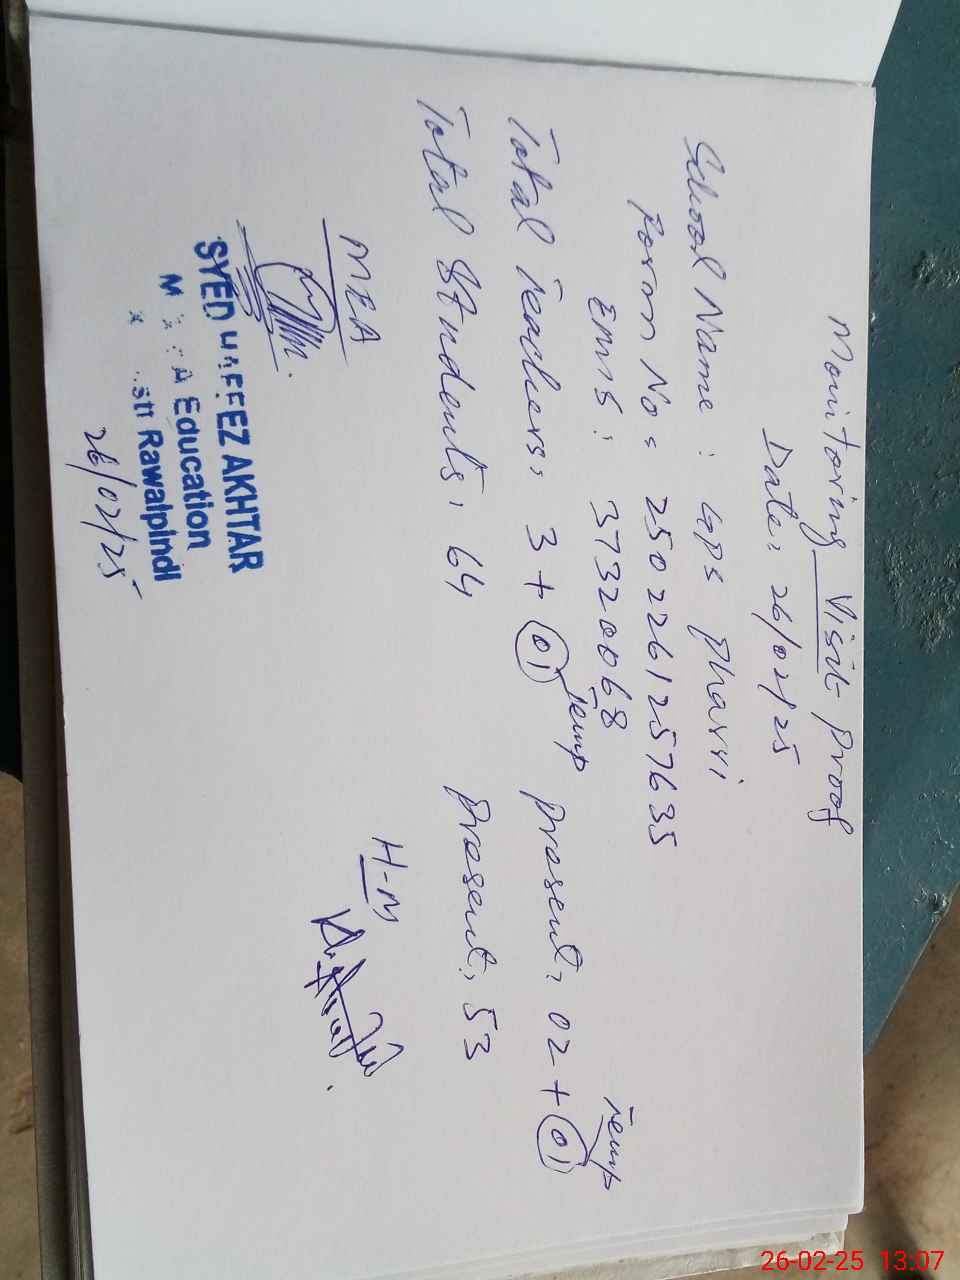 Monitoring Visit Proof
Date: 26/02/25
School Name: GPS Pharri
Form No: 2502261257635
EMIS: 37320068
Total Teachers: 3 + 01 Temp Present: 02 + 01 Temp
Total Students: 64 Present: 53
MEA
H-M
SYED HAFEEZ AKHTAR
M A Education
stt Rawalpindi
26/02/25
26-02-25 13:07